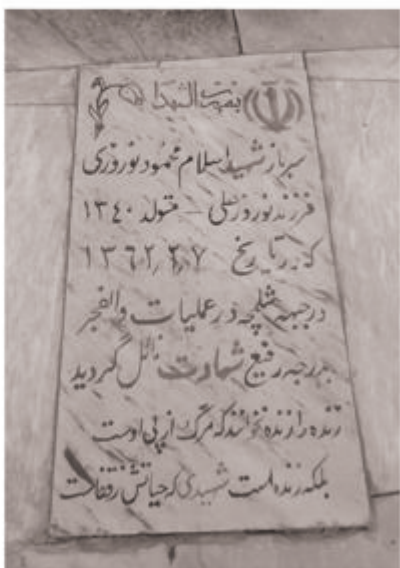 بهشت الشهدا
سرباز شهید اسلام محمود نوروزی
فرزند نوروزعلی – متولد ۱۳۴۰
که در تاریخ ۱۳۶۲٫۲٫۷
در جبهه شلمچه در عملیات والفجر
بدرجه رفیع شهادت نائل گردید
زنده را زنده نخوانند که مرگ از پی اوست
بلکه زنده است شهیدی که حیاتش ز قفاست